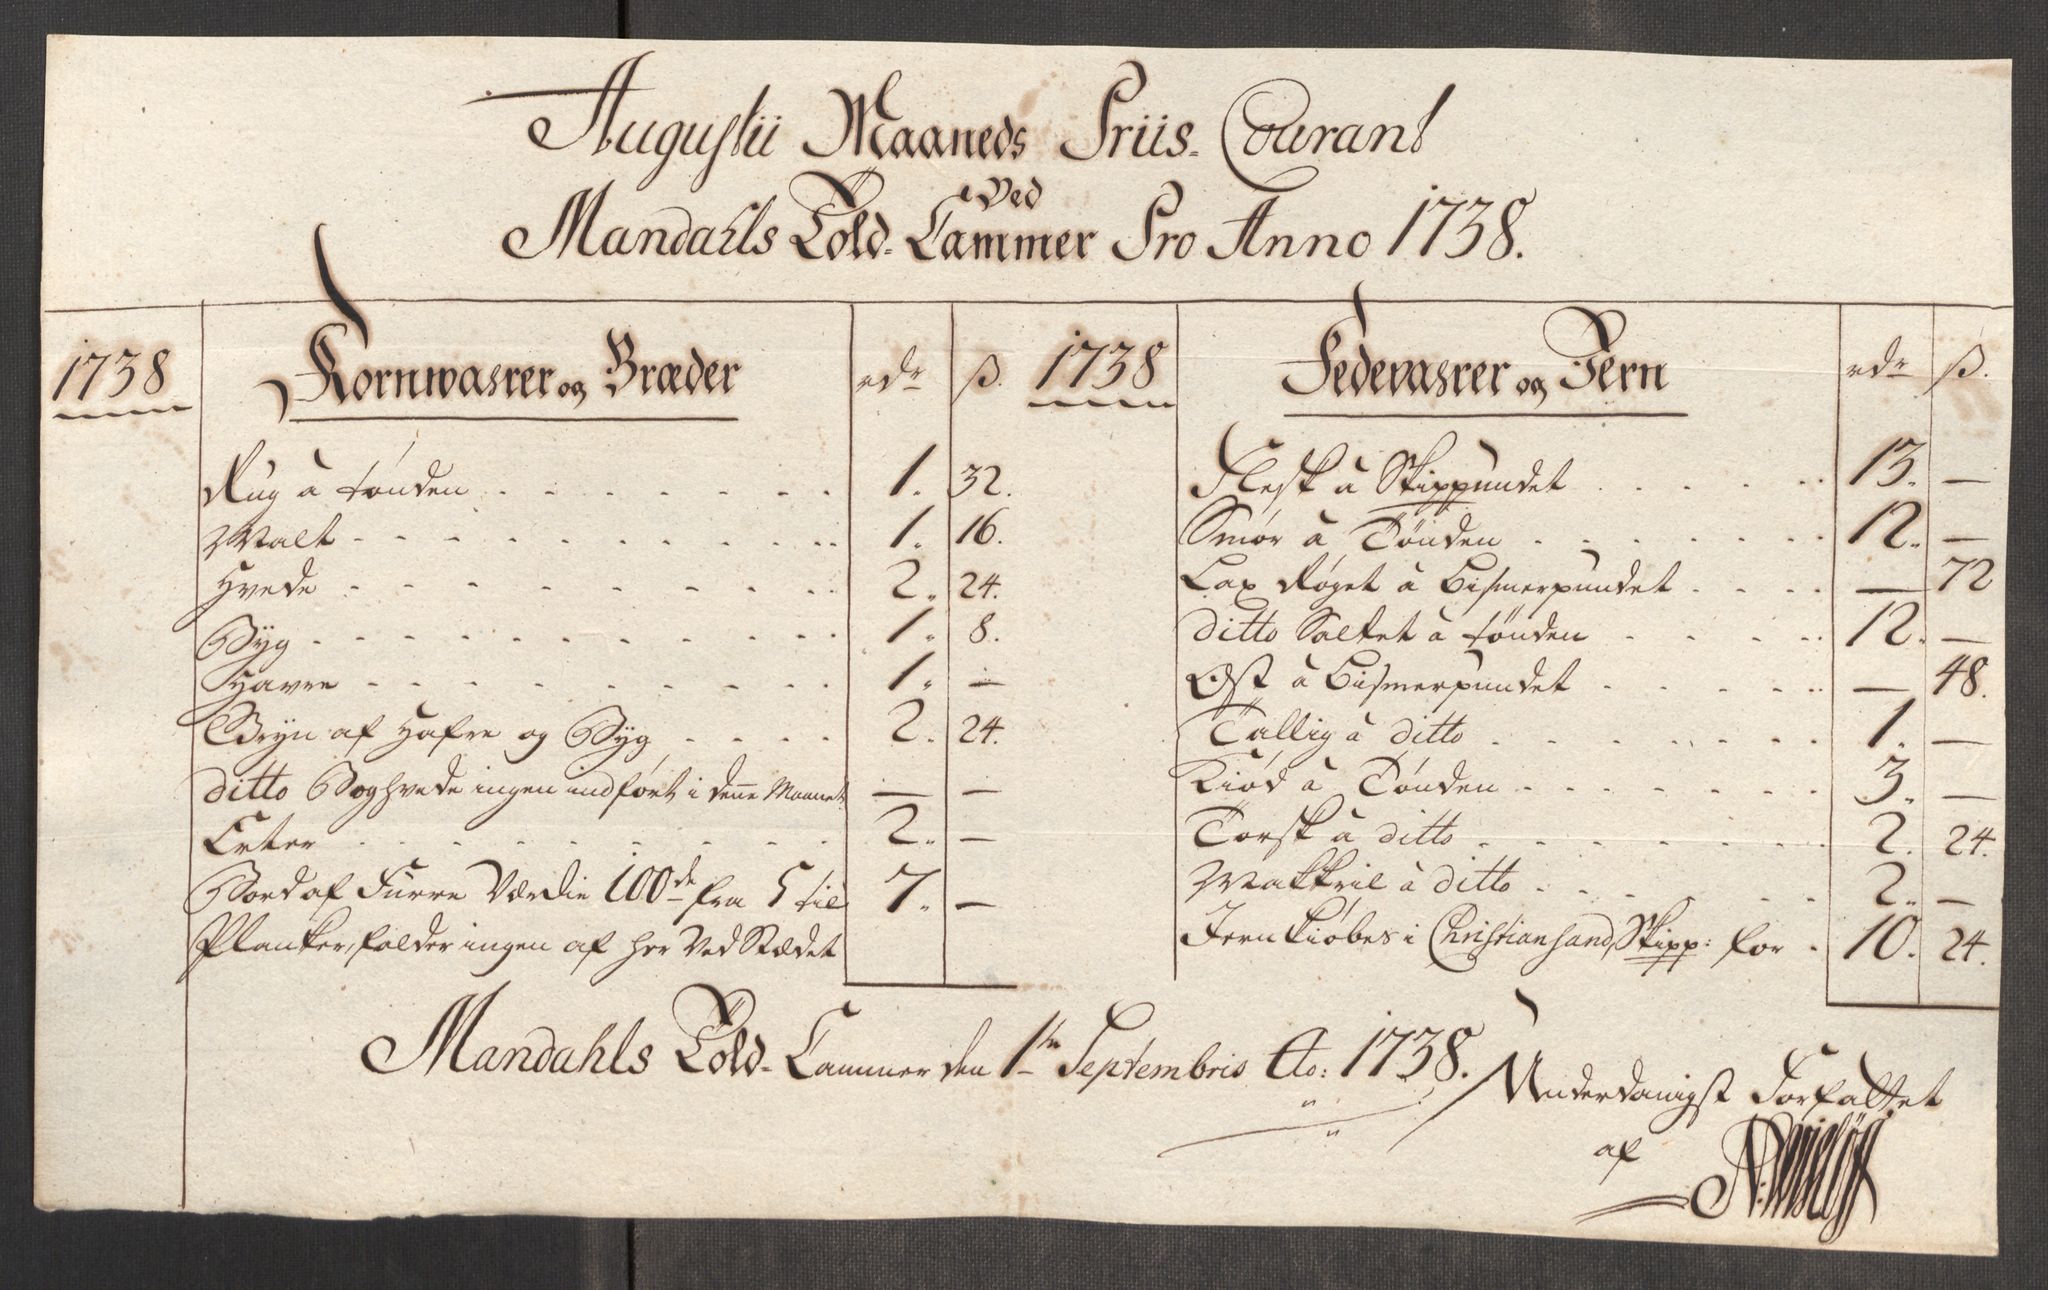 Augustii Maaneds Priis-Courant
ved
Mandahls Told-Cammer Pro Anno 1738.
1738 Kornwahrer og Bræder rdr ß.
Rug à tønden 1. 32.
Malt 1. 16.
Hvede 2. 24.
Byg 1. 8.
Havre 1. —
Gryn af Hafre og Byg 2. 24.
ditto Boghvede ingen indført i denne Maanet — —
Erter 2. —
Bord af Furre Værdie 100de fra 5 til 7. —
Planker, falder ingen af her ved Stædet
1738 Fedevahrer og Jern rdr ß.
Flesk à Skippundet 13. —
Smør à Tønden 12. —
Lax Røget à Bismerpundet — 72
ditto Saltet à tønden 12. —
Ost à Bismerpundet — 48.
Tallig à ditto 1. —
Kiød à Tønden 3. —
Torsk à ditto 2. 24.
Makkril à ditto 2. —
Jern kiøbes i Christiansand, Skipp: for 10. 24.
Mandahls Told-Cammer den 1te Septembris Ao: 1738.
Underdanigst Forfattet
af